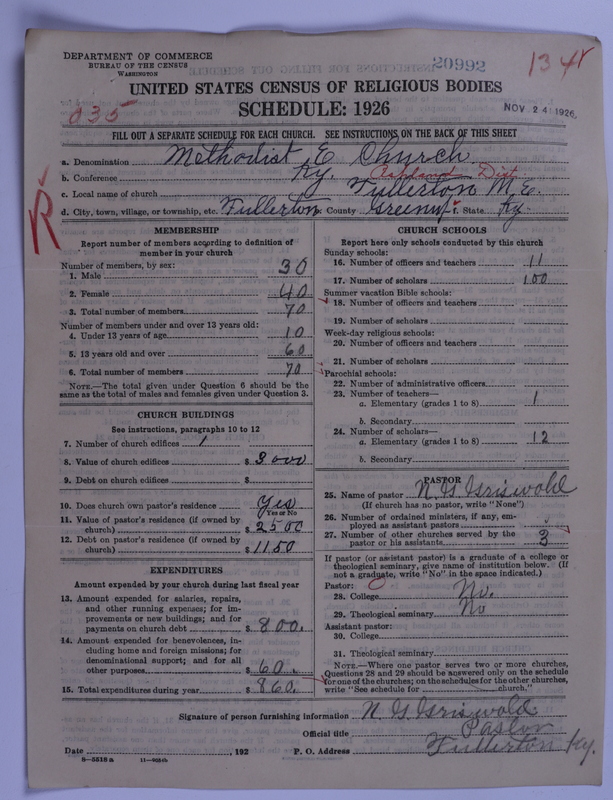 DEPARTMENT OF COMMERCE
BUREAU OF THE CENSUS
WASHINGTON
20992
134
UNITED STATES CENSUS OF RELIGIOUS BODIES
SCHEDULE: 1926
035
NOV 24 1926
FILL OUT A SEPARATE SCHEDULE FOR EACH CHURCH. SEE INSTRUCTIONS ON THE BACK OF THIS SHEET
a. Denomination Methodist E Church
b. Conference Ky. Ashland Dist
c. Local name of church Fullerton M.E.
d. City, town, village, or township, etc. Fullerton County Greenup f. State Ky.
R
MEMBERSHIP
Report number of members according to definition of
member in your church
Number of members, by sex:
1. Male 30
2. Female 40
3. Total number of members 70
Number of members under and over 13 years old:
4. Under 13 years of age 10
5. 13 years old and over 60
6. Total number of members 70
NOTE.—The total given under Question 6 should be the
same as the total of males and females given under Question 3.
CHURCH BUILDINGS
See instructions, paragraphs 10 to 12
7. Number of church edifices 1
8. Value of church edifices $ 3000
9. Debt on church edifices $
10. Does church own pastor's residence Yes
Yes or No
11. Value of pastor's residence (if owned by
church) $ 2500
12. Debt on pastor's residence (if owned by
church) $ 1150
EXPENDITURES
Amount expended by your church during last fiscal year
13. Amount expended for salaries, repairs,
and other running expenses; for im-
provements or new buildings; and for
payments on church debt $ 800.
14. Amount expended for benevolences, in-
cluding home and foreign missions; for
denominational support; and for all
other purposes $ 60.
15. Total expenditures during year $ 860.
CHURCH SCHOOLS
Report here only schools conducted by this church
Sunday schools:
16. Number of officers and teachers 11
17. Number of scholars 100
Summer vacation Bible schools:
18. Number of officers and teachers
19. Number of scholars
Week-day religious schools:
20. Number of officers and teachers
21. Number of scholars
Parochial schools:
22. Number of administrative officers
23. Number of teachers—
a. Elementary (grades 1 to 8) 1
b. Secondary
24. Number of scholars—
a. Elementary (grades 1 to 8) 12
b. Secondary
PASTOR
25. Name of pastor N. G. Griswold
(If church has no pastor, write "None")
26. Number of ordained ministers, if any, em-
ployed as assistant pastors
27. Number of other churches served by the
pastor or his assistants 3
If pastor (or assistant pastor) is a graduate of a college or
theological seminary, give name of institution below. (If
not a graduate, write "No" in the space indicated.)
Pastor:
28. College No.
29. Theological seminary No
Assistant pastor:
30. College
31. Theological seminary
NOTE.—Where one pastor serves two or more churches,
Questions 28 and 29 should be answered only on the schedule
for one of the churches; on the schedules for the other churches,
write "See schedule for church."
Signature of person furnishing information N. G. Griswold
Official title Pastor
Date , 192 P. O. Address Fullerton Ky.
8—5518 a